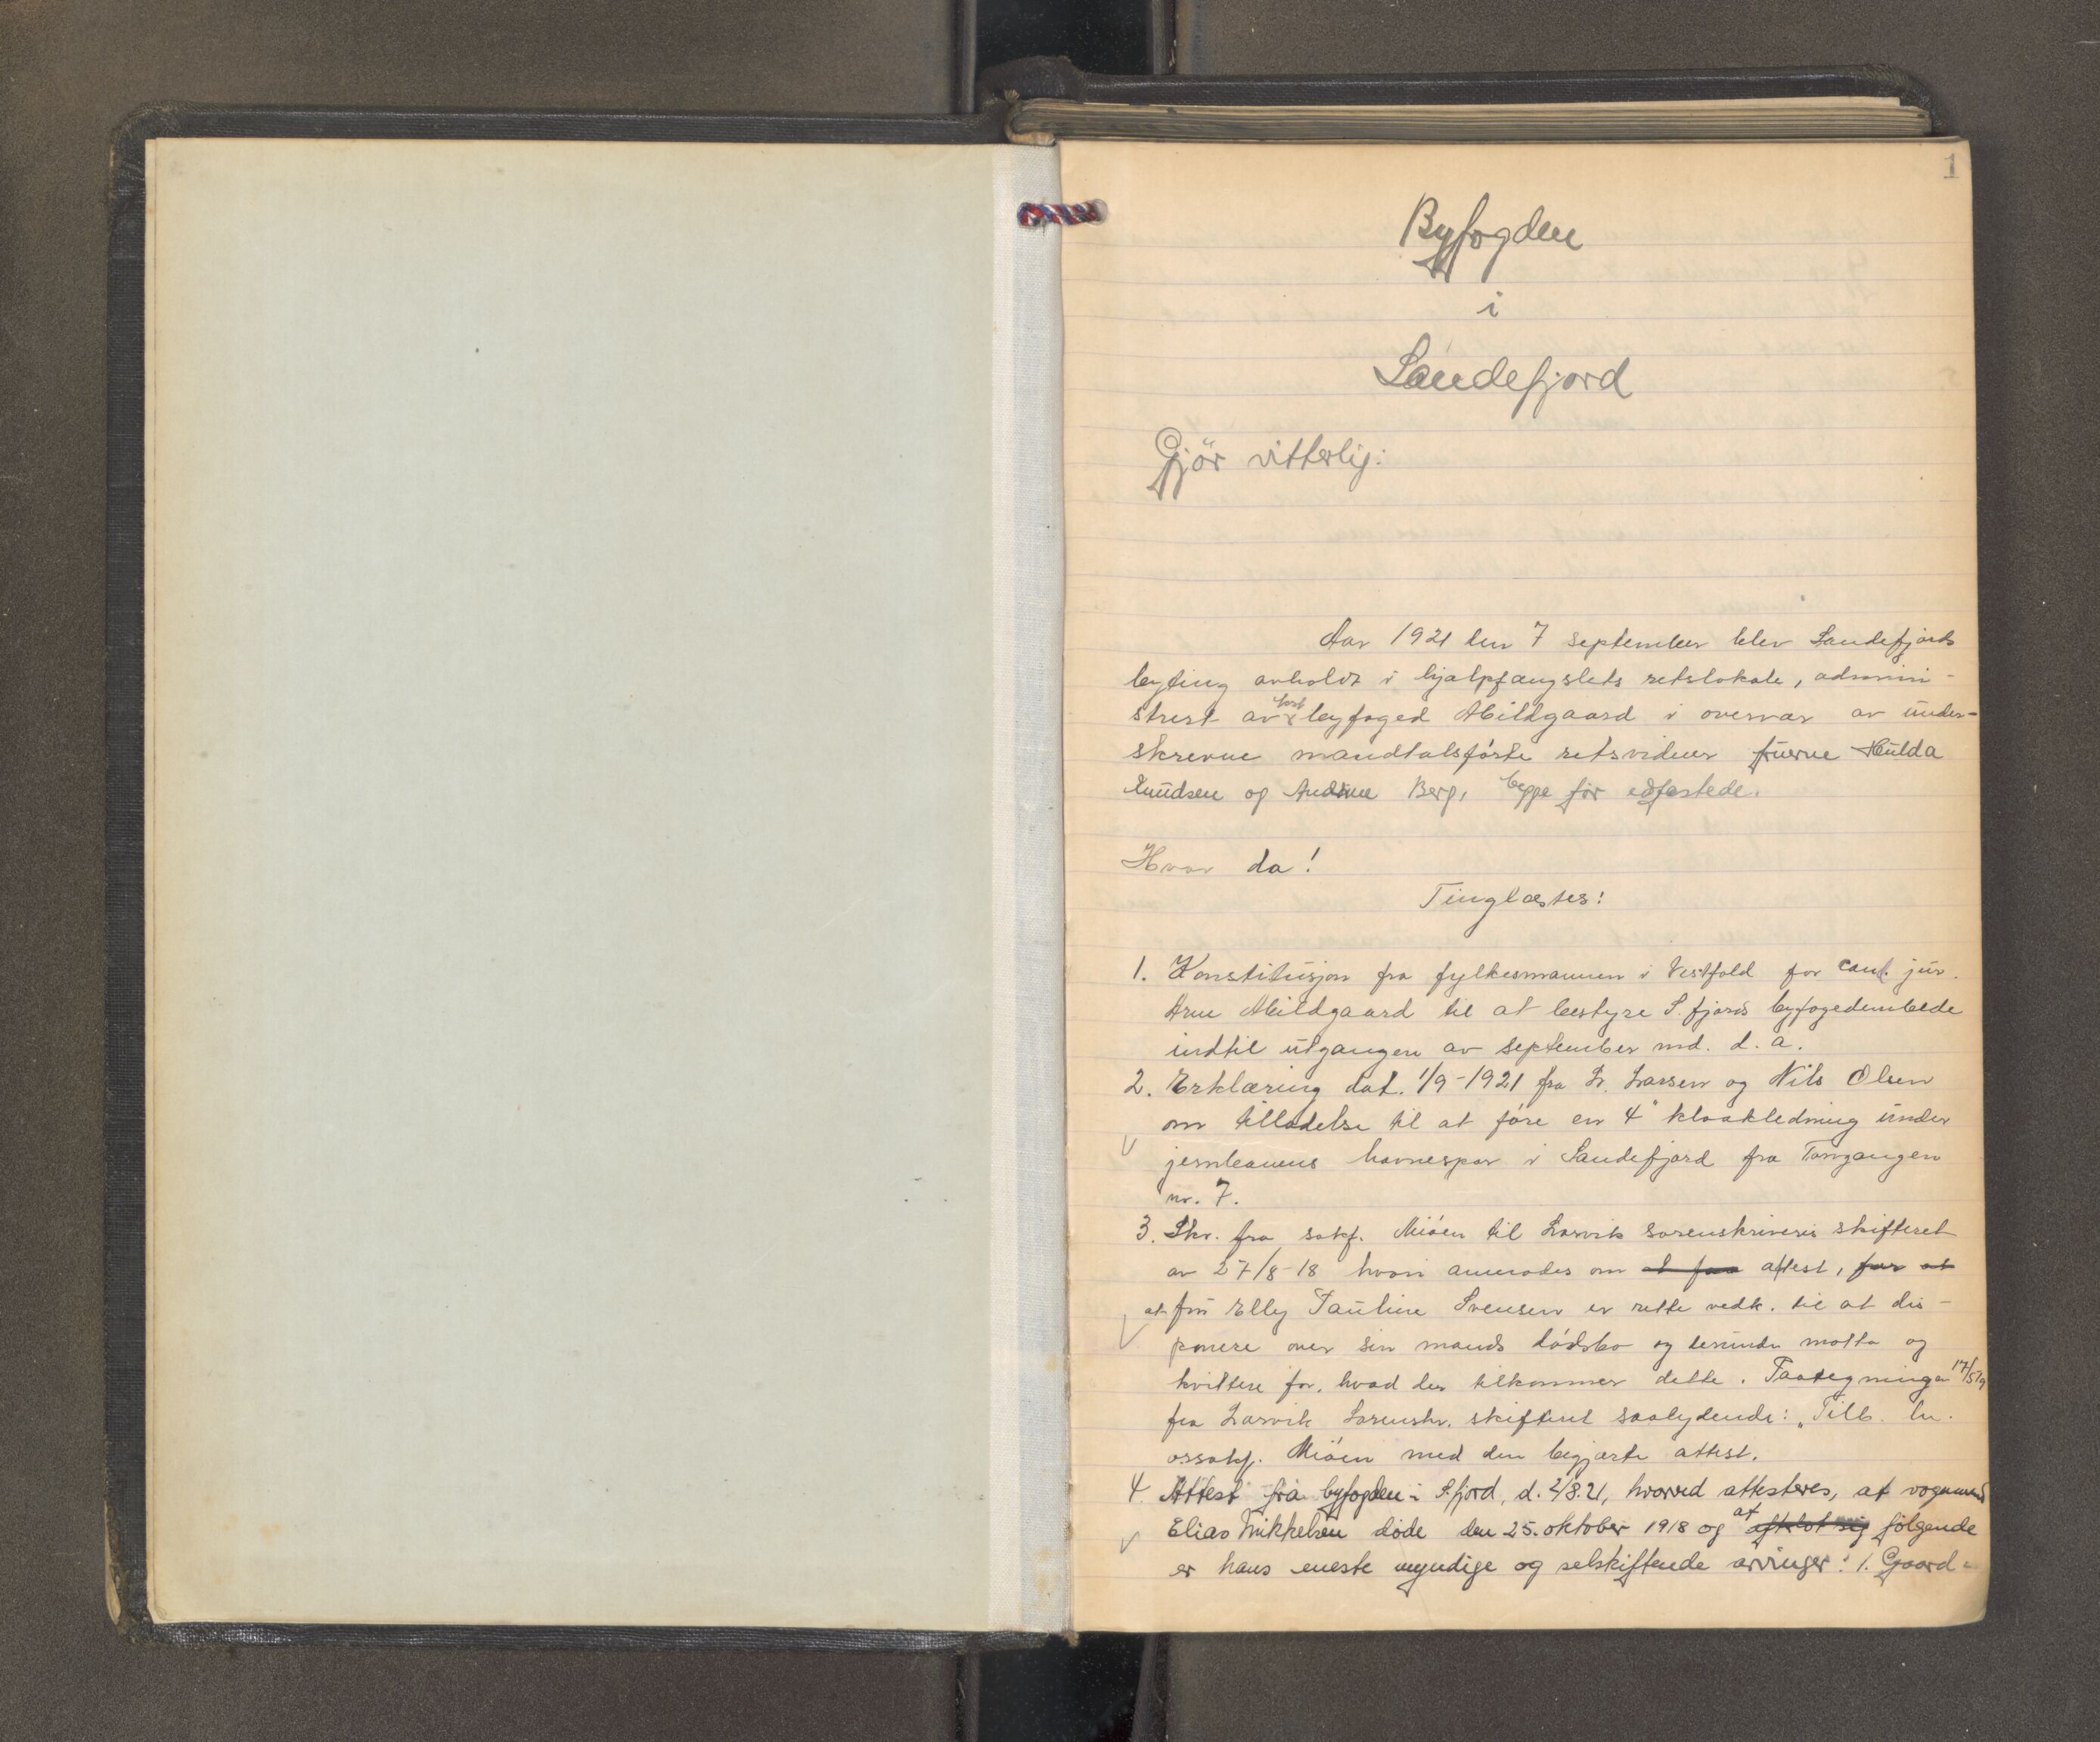 1
Byfogden
i
Sandefjord
Gjör vitterlig:
Aar 1921 den 7 september blev Sandefjords
byting avholdt i hjælpfangslets retslokale, admini-
strert av kst byfoged Abildgaard i overvær av under-
skrevne mandtalsförte retsvidner fruerne Hulda
Knudsen og Andrine Berg, begge för edfæstede.
Hvor da!
Tinglæstes:
1. Konstitusjon fra fylkesmannen i Vestfold for cand. jur.
Arne Abildgaard til at bestyre S.fjords byfogedembede
indtil utgangen av september md. d. a.
2. Erklæring dat. 1/9-1921 fra L. Larsen og Nils Olsen
om tilladelse til at före en 4" kloakledning under
jernbanens havnespor i Sandefjord fra
nr. 7.
3. Skr. fra sakf. Miöen til Larvik sorenskriveris skifteret
av 27/8-18 hvori anmodes om at faa attest, for at
at fru Elly Pauline Svensen er rette vedk. til at dis-
ponere over sin mands dödsbo og herunder motta og
kvittere for, hvad der tilkommer dette. Paategninga 17/5 19
fra Larvik Sorenskr. skifteret saalydende: "Tilb. hr.
o.r.sakf. Miöen med den begjærte attest.
4 Attest fra byfogden i S.fjord, d. 2/8.21, hvorved attesteres, at vognmand
Elias Mikkelsen döde den 25. oktober 1918 og at efterlot sig fölgende
er hans eneste myndige og selskiftende arvinger: 1. Gaard-